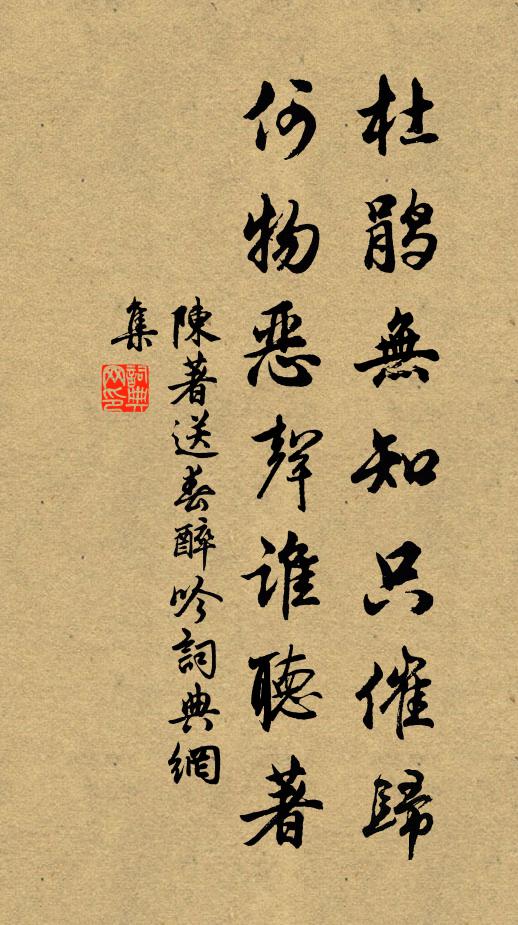 杜鹃無知只催歸
何物惡聲誰聽著
陳著送春醉吟詞典網
集
詞典網印